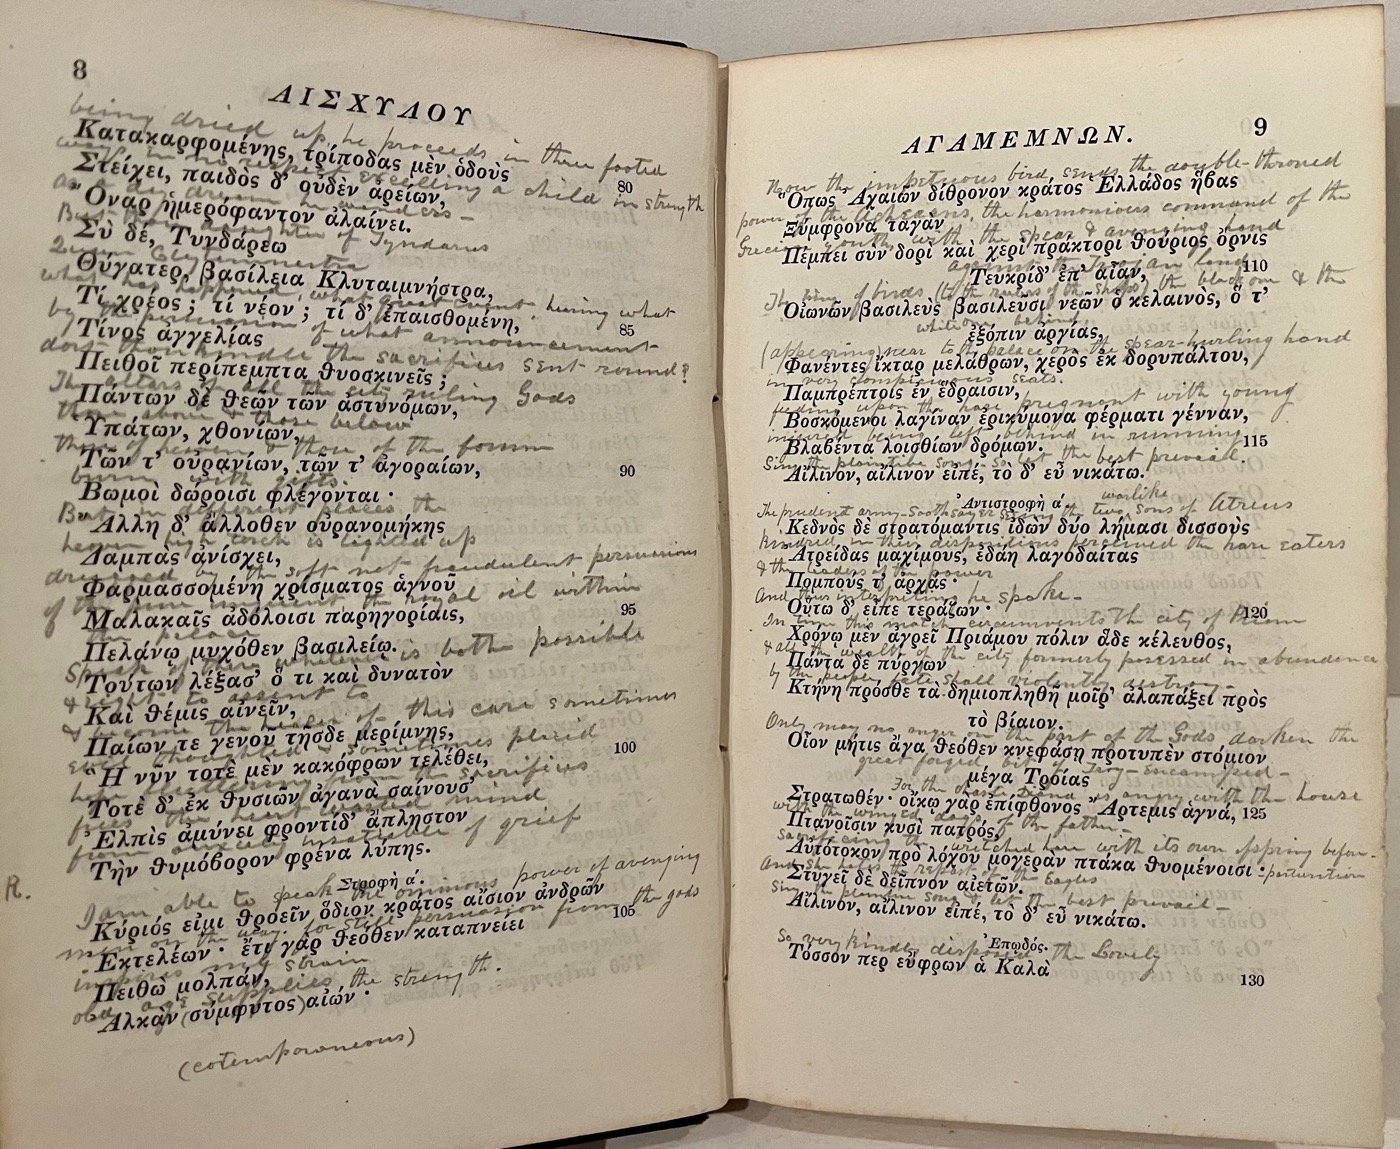 8
ΑΙΣΧΥΛΟΥ
being dried up, he proceeds in three footed
Κατακαρφομένης, τρίποδας μὲν ὁδοὺς
ways, in no respect excelling a child in strength
Στείχει, παιδὸς δ' οὐδὲν ἀρείων, 80
as a day dream he wanders –
Ὄναρ ἡμερόφαντον ἀλαίνει.
But thou daughter of Tyndarus
Σὺ δέ, Τυνδάρεω
Queen Clytemnestra
Θύγατερ, βασίλεια Κλυταιμνήστρα,
what has happened, what great event, hearing what
Τί χρέος; τί νέον; τί δ' ἐπαισθομένη, 85
by the persuasion of what announcement
Τίνος ἀγγελίας
dost thou kindle the sacrifices sent round?
Πειθοῖ περίπεμπτα θυοσκινεῖς;
The altars of all the city ruling Gods
Πάντων δὲ θεῶν τῶν ἀστυνόμων,
those above & those below
Ὑπάτων, χθονίων,
those of heaven & those of the forum
Τῶν τ' οὐρανίων, τῶν τ' ἀγοραίων, 90
burn with gifts.
Βωμοὶ δώροισι φλέγονται·
But in different places the
Ἄλλη δ' ἄλλοθεν οὐρανομήκης
heaven high torch is lighted up
Λαμπὰς ἀνίσχει,
dressed by the soft not fraudulent persuasions
Φαρμασσομένη χρίσματος ἁγνοῦ
of the pure ointment the royal oil within
Μαλακαῖς ἀδόλοισι παρηγορίαις, 95
the palace
Πελάνῳ μυχόθεν βασιλείῳ.
Speak of these whatever is both possible
Τούτων λέξασ' ὅ τι καὶ δυνατὸν
& right to assent to
Καὶ θέμις αἰνεῖν,
& become the healer of this care sometimes
Παίων τε γενοῦ τῆσδε μερίμνης,
evil thoughted & sometimes placid
Ἣ νῦν τοτὲ μὲν κακόφρων τελέθει, 100
hope flattering from the sacrifices
Τοτὲ δ' ἐκ θυσιῶν ἀγανὰ σαίνουσ'
frees the heart wasted mind
Ἐλπὶς ἀμύνει φροντίδ' ἄπληστον
from anxiety insatiable of grief
Τὴν θυμόβορον φρένα λύπης.
Στροφὴ ά.
R.
I am able to speak the ominous power of avenging
Κύριός εἰμι θροεῖν ὅδιον κράτος αἴσιον ἀνδρῶν
men on the way. for still persuasion from the gods
Ἐκτελέων· ἔτι γὰρ θεόθεν καταπνείει 105
inspires my strain
Πειθὼ μολπάν,
old age supplies the strength.
Ἀλκὰν (σύμφυτος) αἰών·
(cotemporaneous)
ΑΓΑΜΕΜΝΩΝ. 9
How the impetuous bird sends the double-throned
Ὅπως Ἀχαιῶν δίθρονον κράτος Ἑλλάδος ἥβας
power of the Achaeans, the harmonious command of the
Ξύμφρονα ταγὰν
Grecian youth, with the spear & avenging hand
Πέμπει σὺν δορὶ καὶ χερὶ πράκτορι θούριος ὄρνις
against the Trojan land
Τευκρίδ' ἐπ' αἶαν, 110
The king of birds (to the rulers of the ships) the black one & the
Οἰωνῶν βασιλεὺς βασιλεῦσι νεῶν ὁ κελαινός, ὅ τ'
white behind
ἐξόπιν ἀργίας,
(appearing) near to the palace on the spear-hurling hand
Φανέντες ἴκταρ μελάθρων, χερὸς ἐκ δορυπάλτου,
in very conspicuous seats.
Παμπρέπτοις ἐν ἕδραισιν,
feeding upon the hare pregnant with young
Βοσκόμενοι λαγίναν ἐρικύμονα φέρματι γένναν,
injured being left behind in running
Βλαβέντα λοισθίων δρόμων. 115
Sing the plaintive song – so let the best prevail.
Αἴλινον, αἴλινον εἰπέ, τὸ δ' εὖ νικάτω.
Ἀντιστροφὴ ά.
warlike
The prudent army-soothsayer seeing the two sons of Atreus
Κεδνὸς δὲ στρατόμαντις ἰδὼν δύο λήμασι δισσοὺς
kindred in their dispositions perceived the hare eaters
Ἀτρείδας μαχίμους, ἐδάη λαγοδαίτας
& the leaders of the power
Πομπούς τ' ἀρχάς·
And thus interpreting he spoke –
Οὕτω δ' εἶπε τεράζων· 120
In time this march circumvents the city of Priam
Χρόνῳ μὲν ἀγρεῖ Πριάμου πόλιν ἅδε κέλευθος,
& all the wealth of the city formerly possessed in abundance
Πάντα δὲ πύργων
by the people fate shall violently destroy
Κτήνη πρόσθε τὰ δημιοπληθῆ μοῖρ' ἀλαπάξει πρὸς
τὸ βίαιον.
Only may no anger on the part of the Gods darken the
Οἶον μήτις ἄγα θεόθεν κνεφάσῃ προτυπὲν στόμιον
great forged bit of Troy – encamped –
μέγα Τροίας
For the chaste Diana is angry with the house
Στρατωθέν· οἴκῳ γὰρ ἐπίφθονος Ἄρτεμις ἁγνά, 125
with the winged dogs of the father –
Πτανοῖσιν κυσὶ πατρός,
sacrificing the wretched hare with its own offspring before –
Αὐτότοκον πρὸ λόχου μογερὰν πτάκα θυομένοισι· parturition
And she hates the repast of the Eagles
Στυγεῖ δὲ δεῖπνον αἰετῶν.
Sing the plaintive song & let the best prevail –
Αἴλινον, αἴλινον εἰπέ, τὸ δ' εὖ νικάτω.
Ἐπωδός.
So very kindly disposed the Lovely
Τόσσον περ εὔφρων ἁ Καλὰ 130